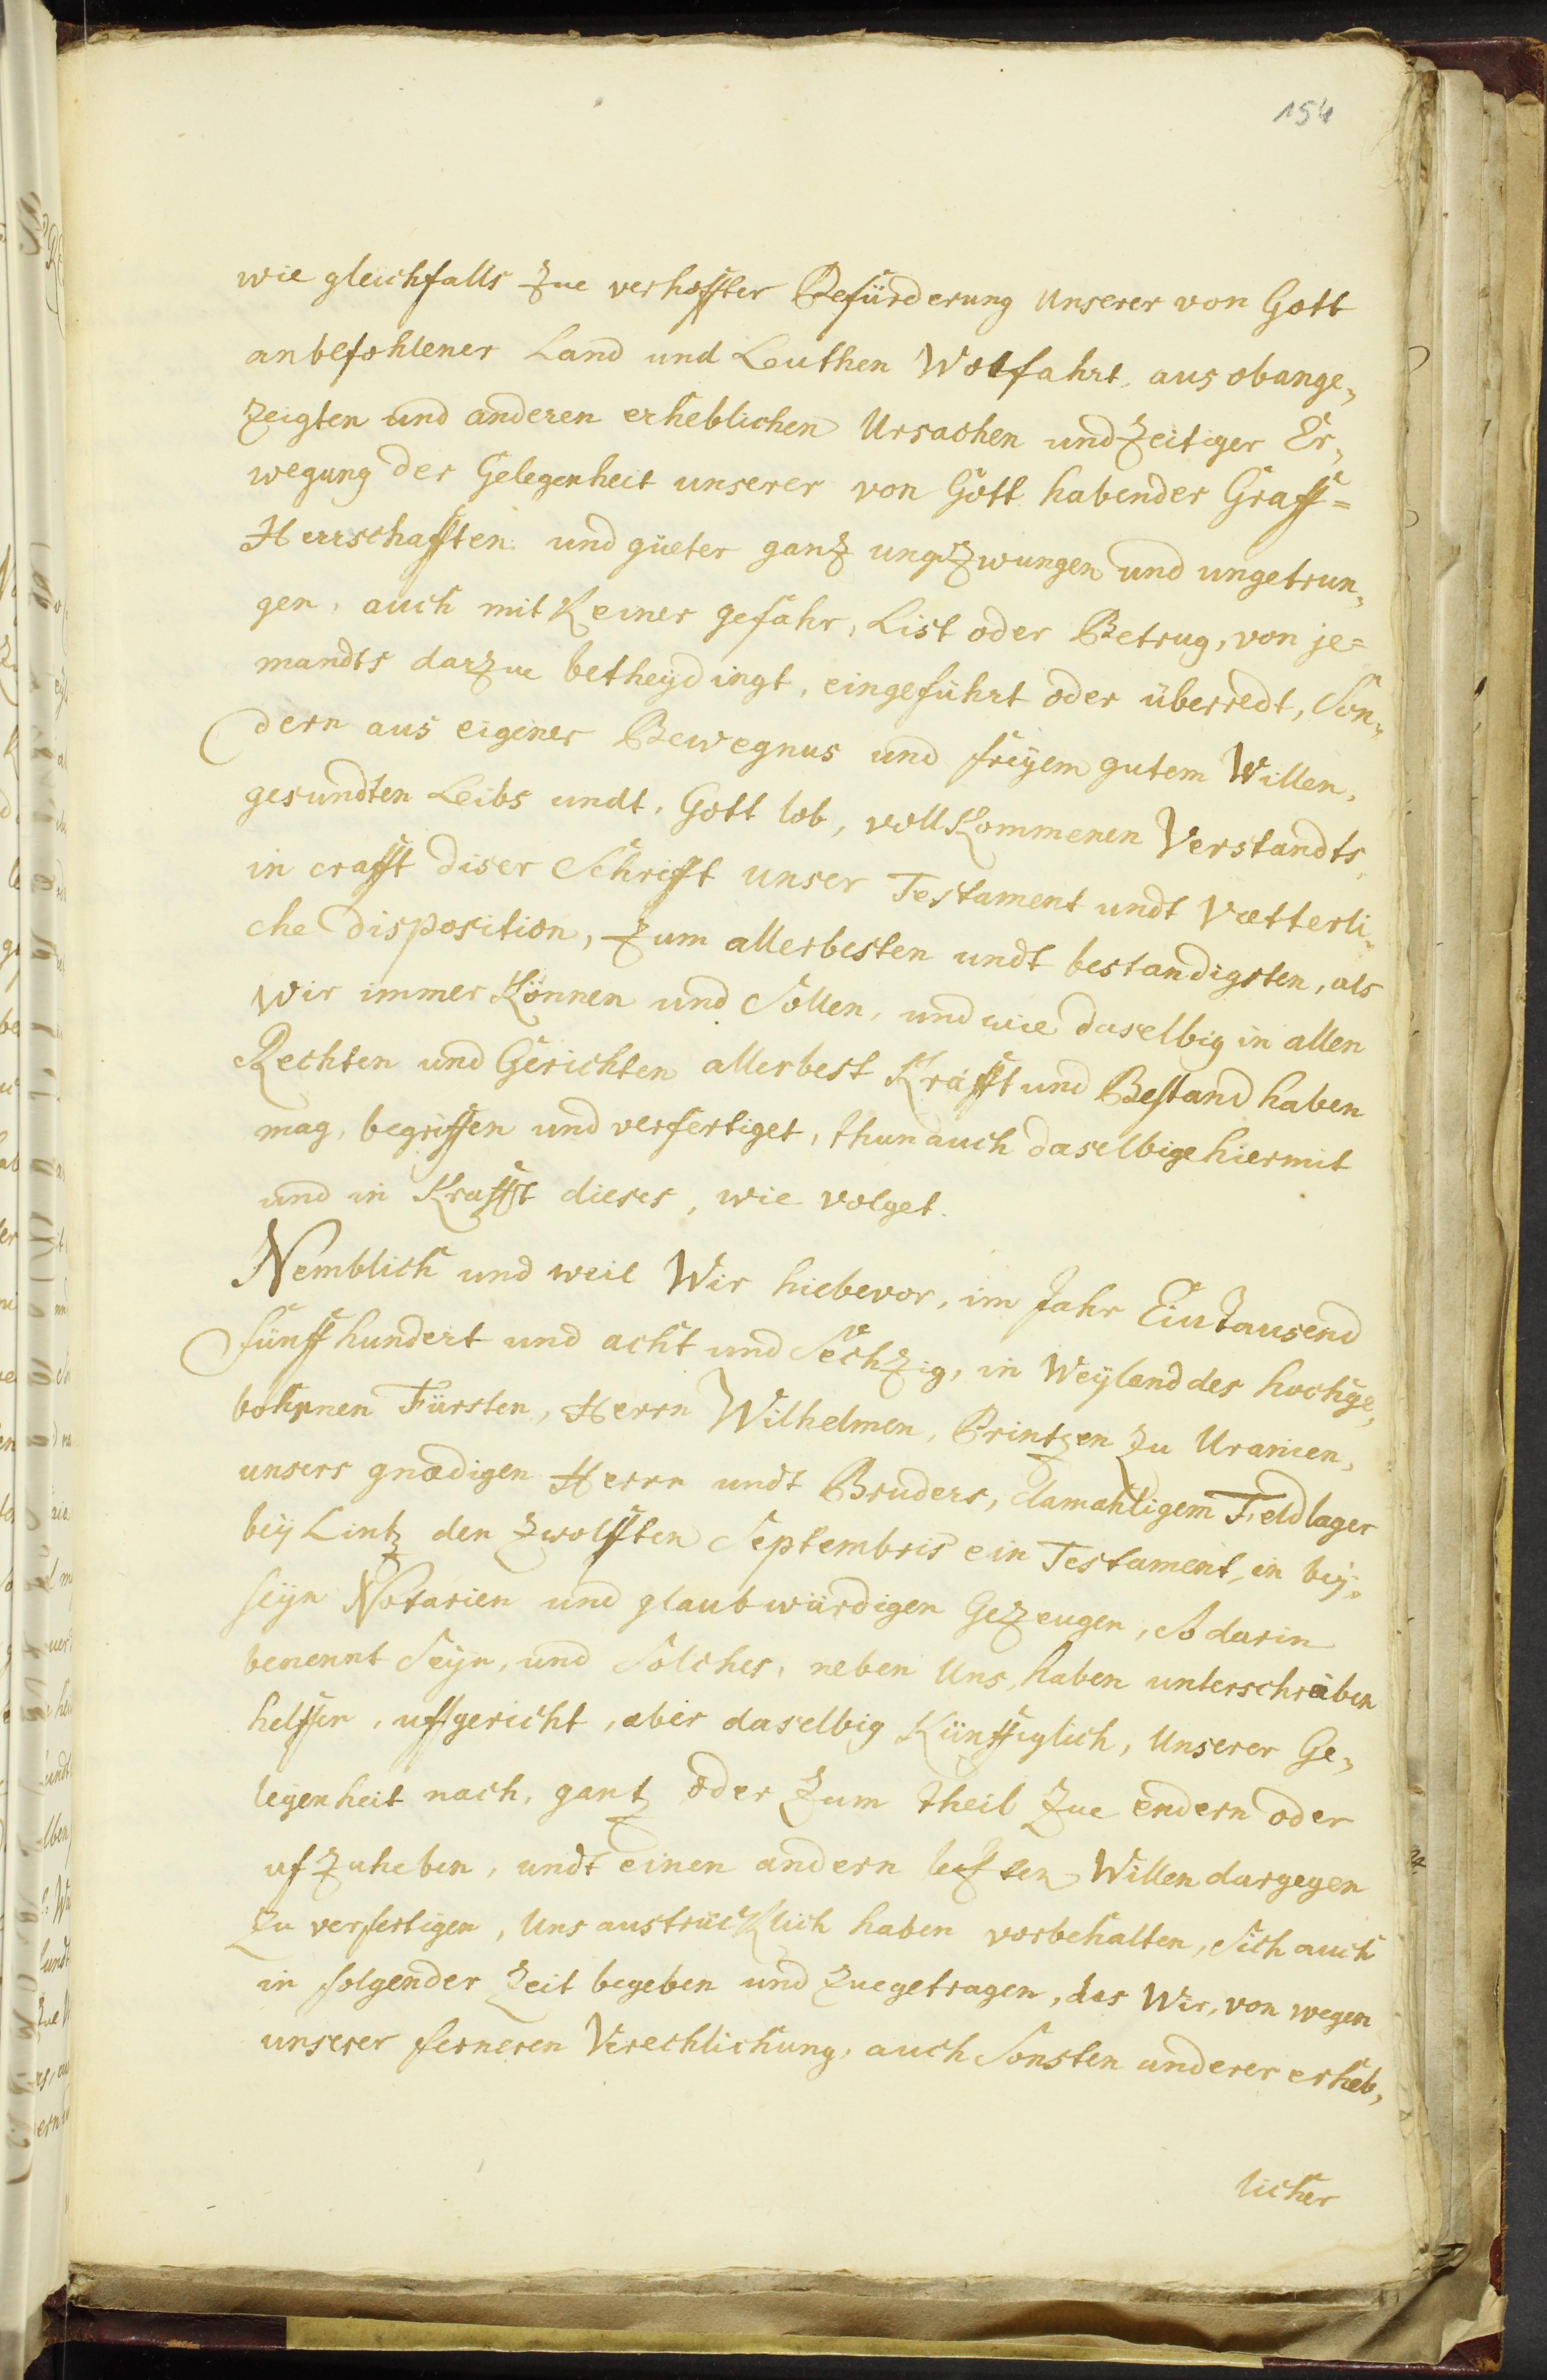 154
wie gleichfalls zue verhoffter Befürderung Unserer von Gott
anbefohlener Land und Leuthen Wolfahrt, aus obange„
zeigten und anderen erheblichen Ursachen und zeitiger Er„
wegung der Gelegenheit unserer von Gott habender Graff=
Herrschafften und güeter ganz ungezwungen und ungetrun„
gen, auch mit Keiner gefahr, List oder Betrug, von je=
mandts darzue betheydingt, eingeführt oder überredt, Son„
dern aus eigener Bewegnus und freyem gutem Willen,
gesundten Leibs undt, Gott lob, vollkommenen Verstandts,
in crafft diser Schrifft unser Testament undt Vætterli„
che disposition, zum allerbesten undt bestandigsten, als
Wir immer Können und Sollen, und wie daselbig in allen
Rechten und Gerichten allerbest Krafft und Bestand haben
mag, begriffen und verfertiget, thun auch daselbige hiermit
und in Krafft dieses, wie volget.
Nemblich und weil Wir hiebevor, im Jahr Ein Tausend
fünffhundert und acht und Sechzig, in Weyland des hochge„
bohrnen Fürsten, Herrn Wilhelmen, Printzen zu Uranien,
unsers gnædigen Herrn undt Bruders, damahligem Feldlager
bey Lintz den zwolfften Septembris ein Testament, in bey„
seyn Notarien und glaubwürdigen Gezeugen, So darin
benennt Seyn, und Solches, neben Uns, haben unterschreiben
helffen, uffgericht, aber daselbig Künfftiglich, Unserer Ge„
legenheit nach, gantz oder zum theil zue endern oder
uf zuheben, undt einen andern letzten Willen dargegen
zu verfertigen, Uns austrücklich haben vorbehalten, Sich auch
in folgender Zeit begeben und zuegetragen, das Wir, von wegen
unserer ferneren Verechlichung, auch Sonsten anderer erheb„
licher